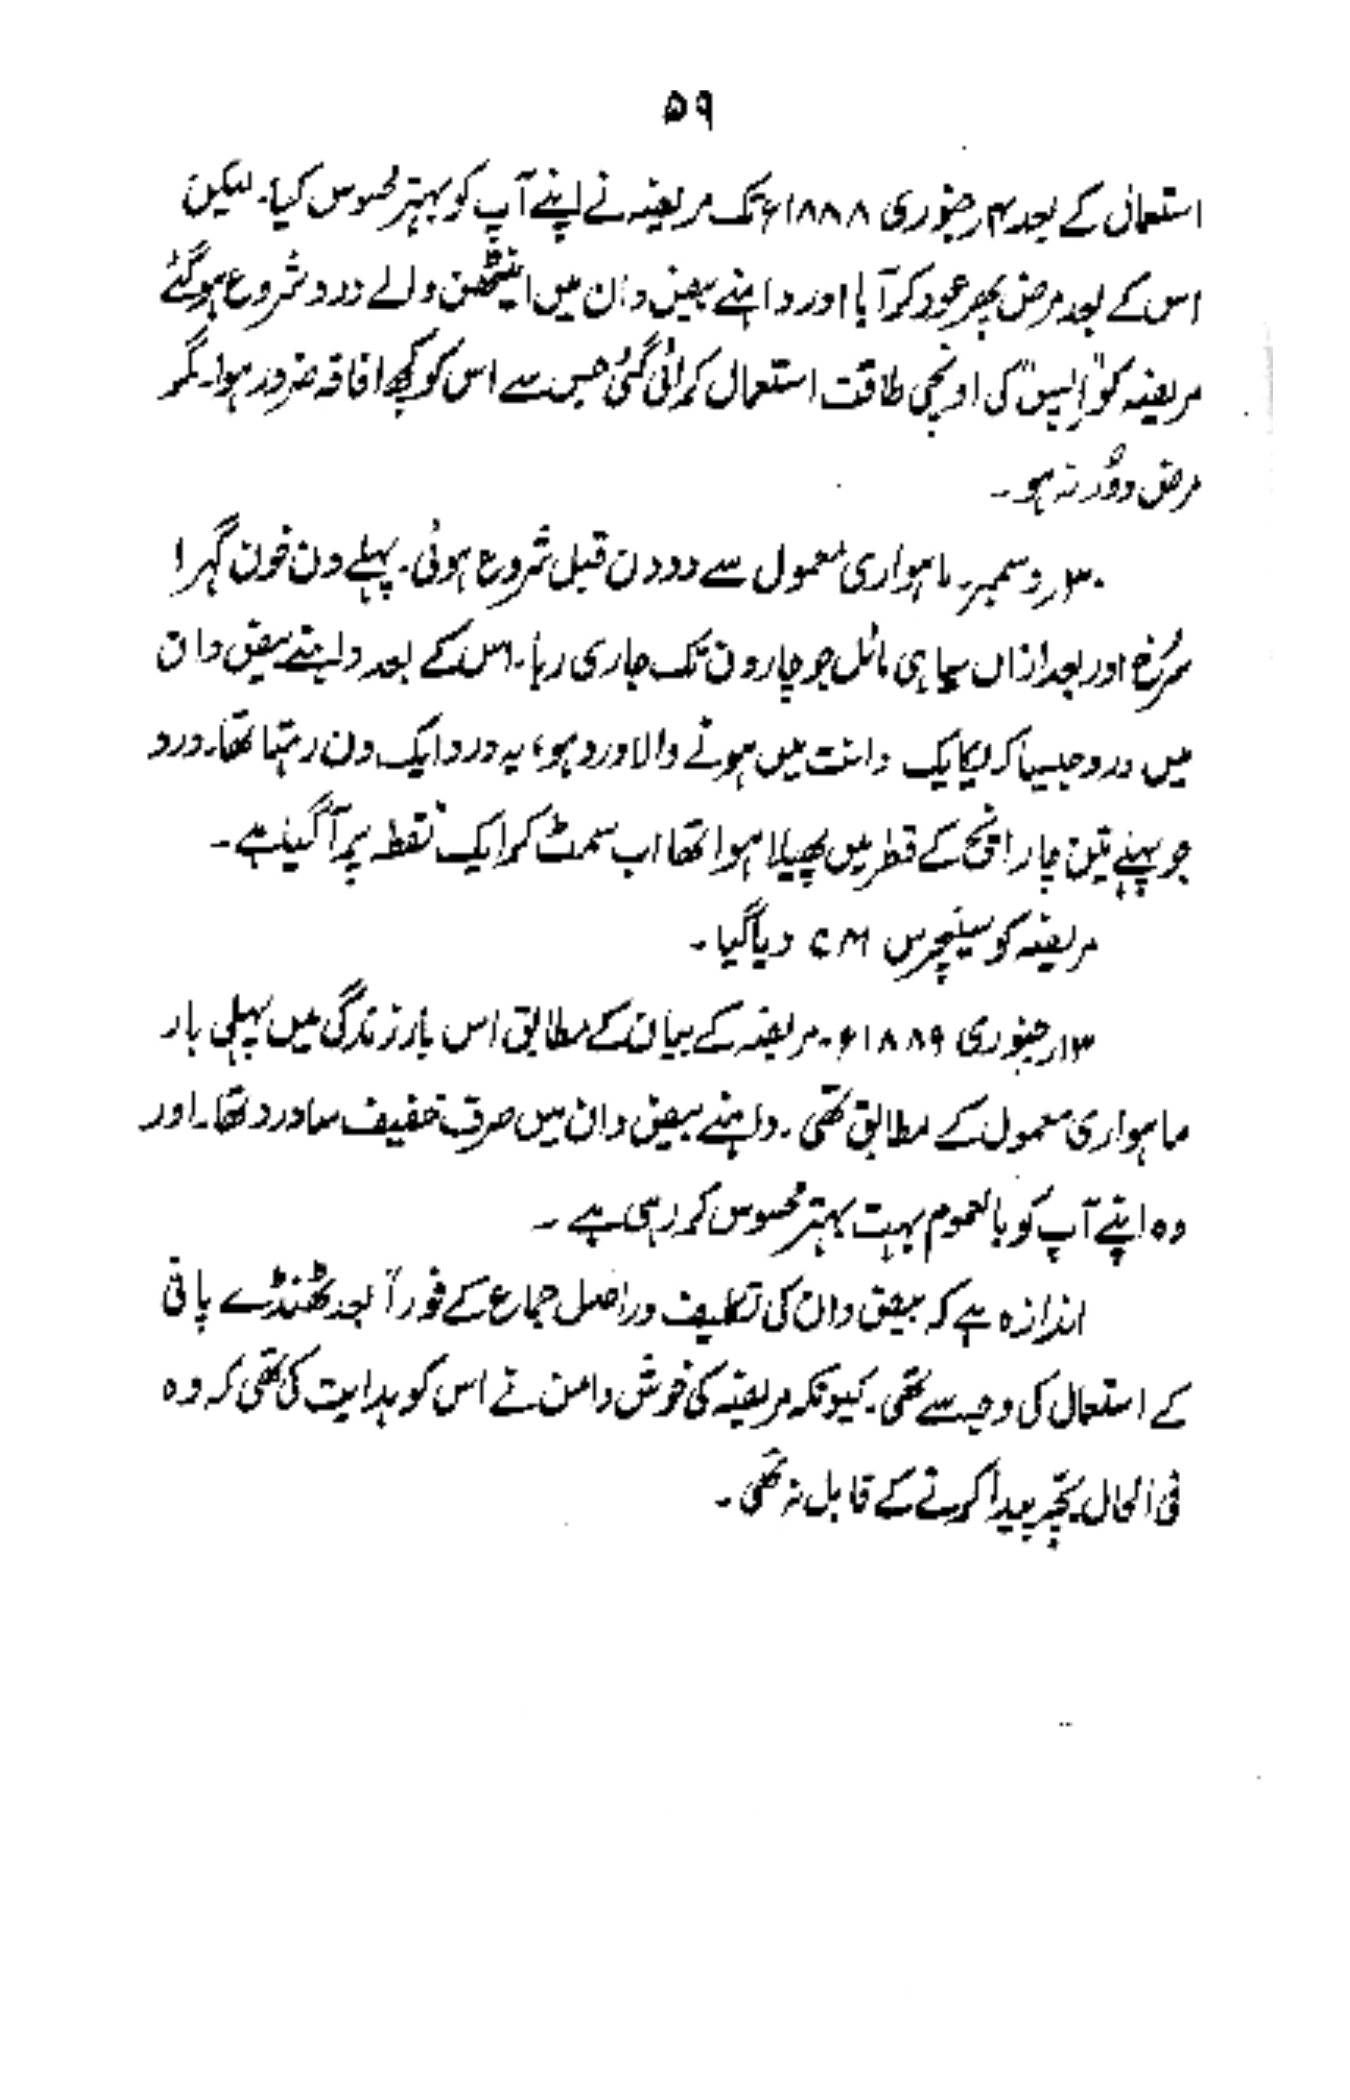 ۵۹
استعمال کے بعد ۴ر جنوری ۱۸۸۸ء تک مریضہ نے اپنے آپ کو بہتر محسوس کیا۔ لیکن
اس کے بعد مرض پھر عود کر آیا اور داہنے بیض دان میں اینٹھن والے درد شروع ہوگئے
مریضہ کو "اپیس" کی اونچی طاقت استعمال کرائی گئی جس سے اس کو کچھ افاقہ ضرور ہوا۔ مگر
مرض دُور نہ ہو۔
۳۰ر دسمبر۔ ماہواری معمول سے دو دن قبل شروع ہوئی۔ پہلے دن خون گہرا
سُرخ اور بعد ازاں سیاہی مائل جو چار دن تک جاری رہا۔ اس کے بعد داہنے بیض دان
میں درد جیسا کہ یکایک دانت میں ہونے والا درد ہو، یہ درد ایک دن رہتا تھا۔ درد
جو پہلے تین چار انچ کے قطر میں پھیلا ہوا تھا اب سمٹ کر ایک نقطہ پر آگیا ہے۔
مریضہ کو سینچرس CM دیا گیا۔
۱۳ر جنوری ۱۸۸۹ء۔ مریضہ کے بیان کے مطابق اس بار زندگی میں پہلی بار
ماہواری معمول کے مطابق تھی۔ داہنے بیض دان میں صرف خفیف سا درد تھا۔ اور
وہ اپنے آپ کو بالعموم بہت بہتر محسوس کر رہی ہے۔
اندازہ ہے کہ بیض دان کی تکلیف دراصل جماع کے فوراً بعد ٹھنڈے پانی
کے استعمال کی وجہ سے تھی۔ کیونکہ مریضہ کی خوش دامن نے اس کو ہدایت کی تھی کہ وہ
فی الحال بچّہ پیدا کرنے کے قابل نہ تھی۔